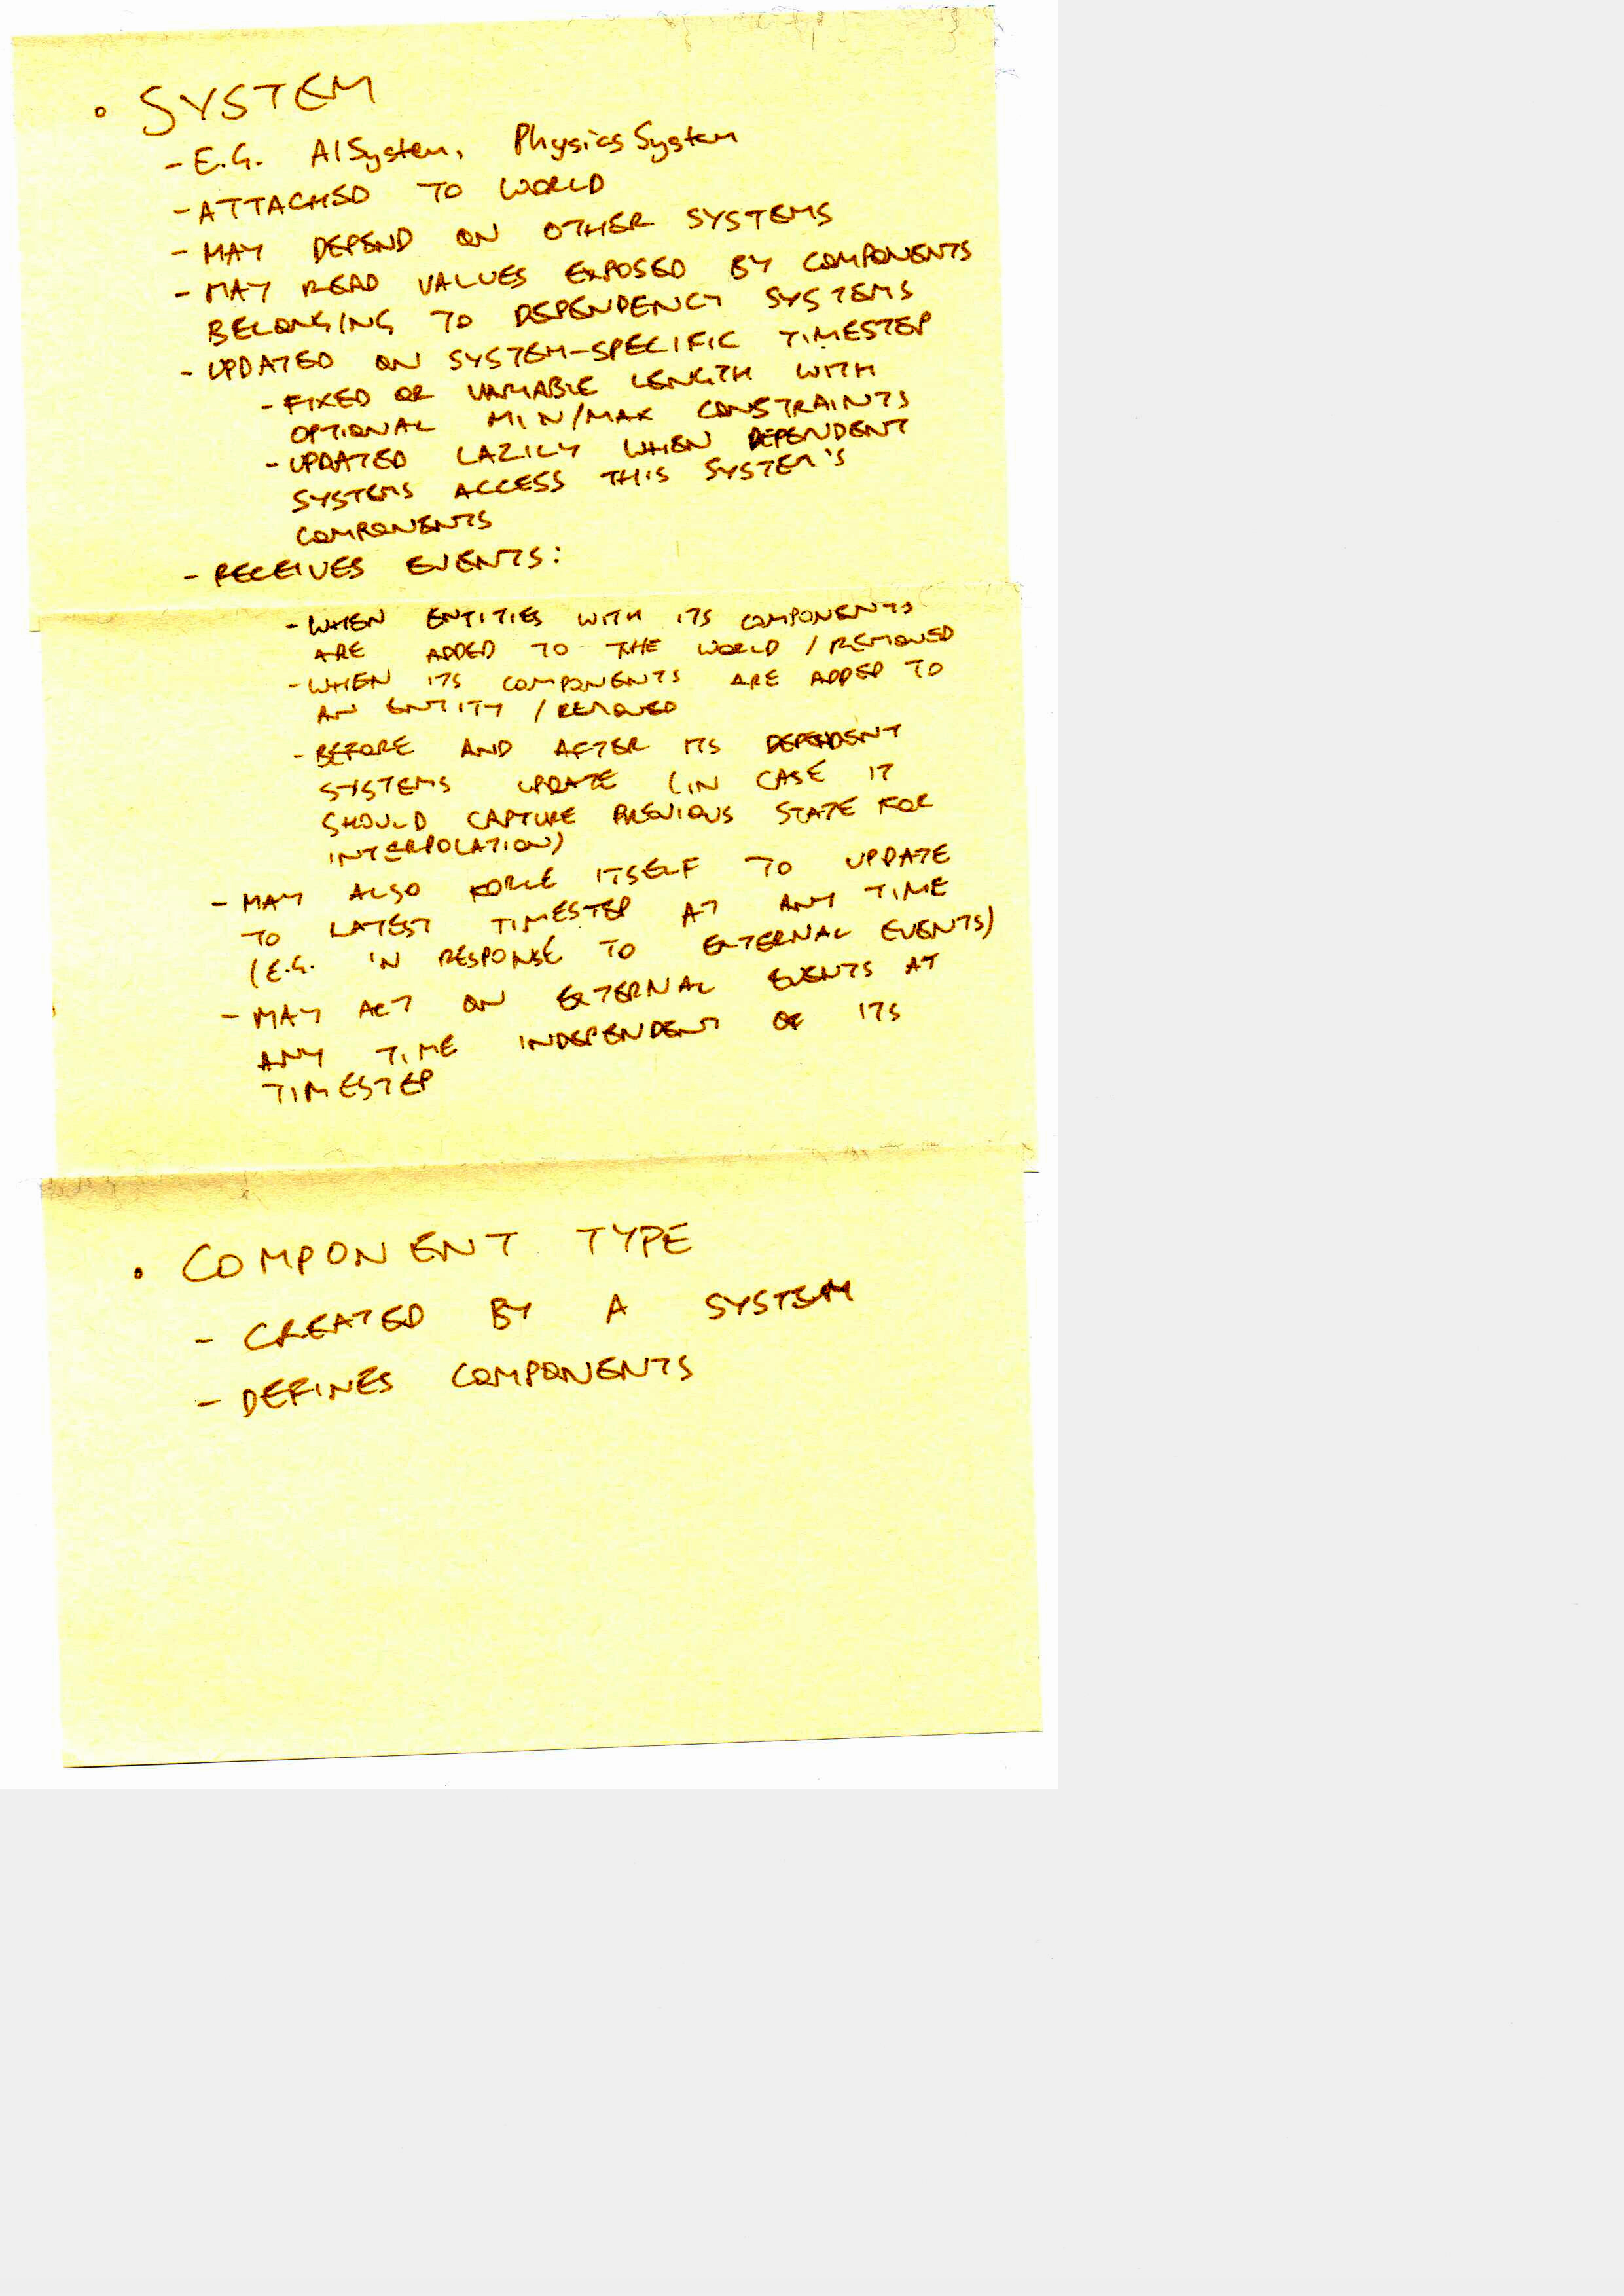 • SYSTEM
- E.G. AISystem, PhysicsSystem
- ATTACHED TO WORLD
- MAY DEPEND ON OTHER SYSTEMS
- MAY READ VALUES EXPOSED BY COMPONENTS
BELONGING TO DEPENDENCY SYSTEMS
- UPDATED ON SYSTEM-SPECIFIC TIMESTEP
- FIXED OR VARIABLE LENGTH WITH
OPTIONAL MIN/MAX CONSTRAINTS
- UPDATED LAZILY WHEN DEPENDENT
SYSTEMS ACCESS THIS SYSTEM'S
COMPONENTS
- RECEIVES EVENTS:
- WHEN ENTITIES WITH ITS COMPONENTS
ARE ADDED TO THE WORLD / REMOVED
- WHEN ITS COMPONENTS ARE ADDED TO
AN ENTITY / REMOVED
- BEFORE AND AFTER ITS DEPENDENT
SYSTEMS UPDATE (IN CASE IT
SHOULD CAPTURE PREVIOUS STATE FOR
INTERPOLATION)
- MAY ALSO FORCE ITSELF TO UPDATE
TO LATEST TIMESTEP AT ANY TIME
(E.G. IN RESPONSE TO EXTERNAL EVENTS)
- MAY ACT ON EXTERNAL EVENTS AT
ANY TIME INDEPENDENT OF ITS
TIMESTEP
• COMPONENT TYPE
- CREATED BY A SYSTEM
- DEFINES COMPONENTS